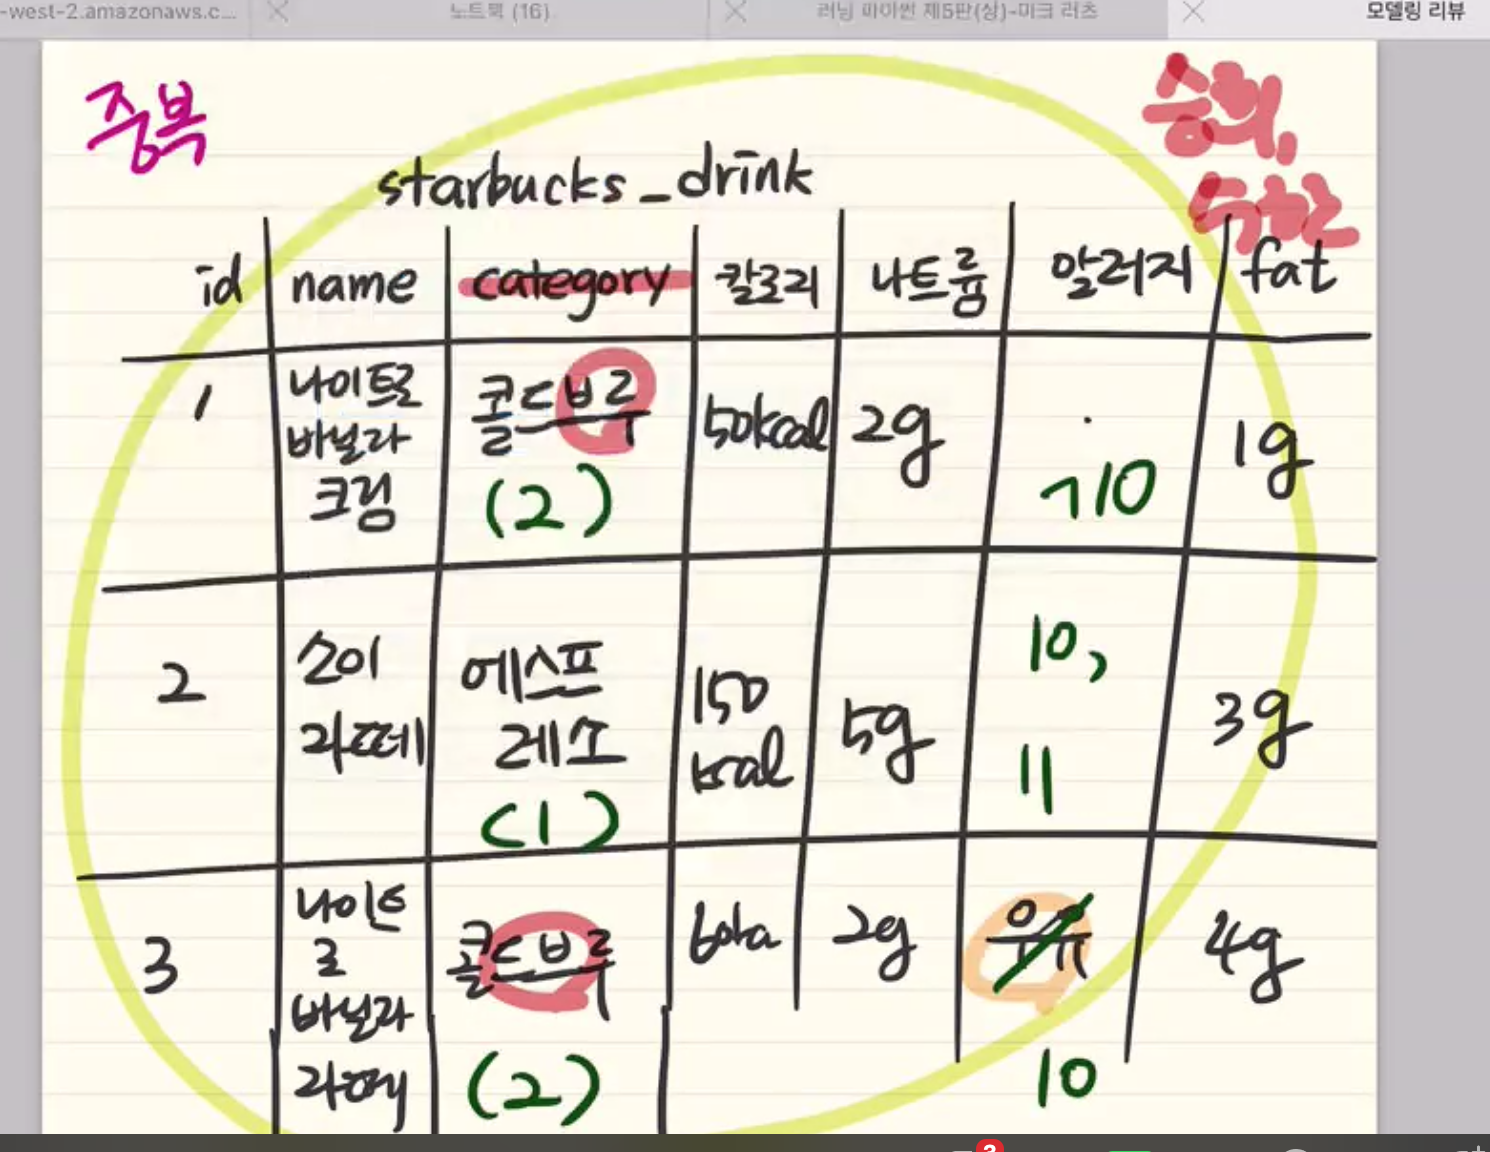 -west-2.amazonaws.c...
노트북 (16)
러닝 파이썬 제5판(상)-마크 러츠
모델링 리뷰
중복
승희,
starbucks_drink
id name category 칼로리 나트륨 알러지 fat
1 나이트로 바닐라 크림 콜드브루 (2) 50kcal 2g 10 1g
2 소이 라떼 에스프레소 (1) 150 kcal 5g 10, 11 3g
3 나이트로 바닐라 라떼 콜드브루 (2) 2g 우유 10 4g